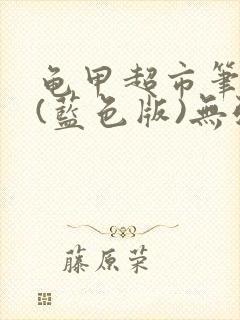 龟甲超市筆
(藍色版)無
藤原荣